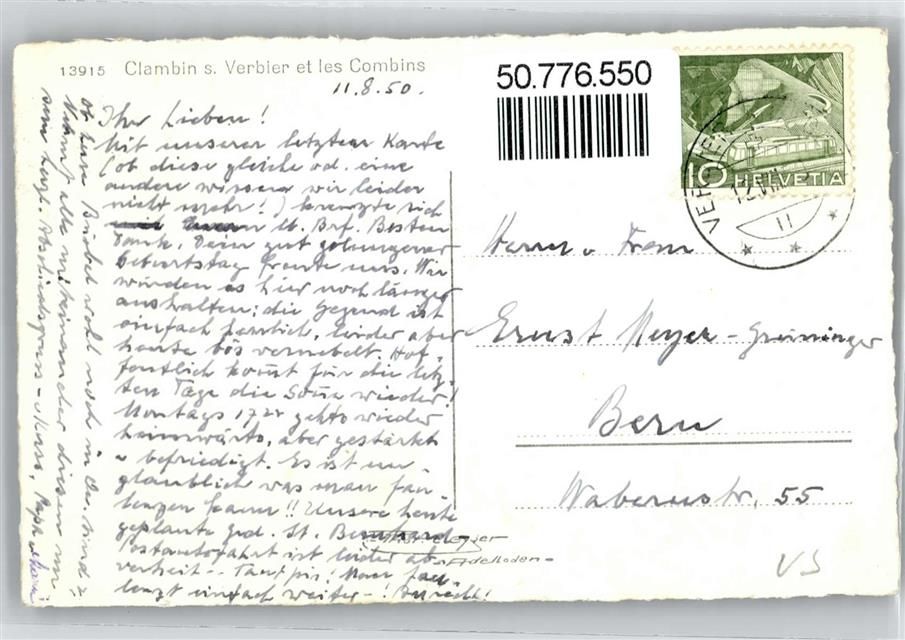 13915 Clambin s. Verbier et les Combins
11.8.50.
50.776.550
10 HELVETIA
VERBIER
Ihr Lieben!
Mit unserer letzten Karte
(ob diese gleiche od. eine
andere wissen wir leider
nicht mehr!) kreuzte sich
lb. Brf. Besten
Dank. Dein gut gelungener
Geburtstag freute uns. Wir
würden es hier noch länger
aushalten; die Gegend ist
einfach herrlich, leider aber
heute bös vernebelt. Hof-
fentlich kommt für die letz-
ten Tage die Sonne wieder!
Montags 17 gehts wieder
heimwärts, aber gestärkt
u befriedigt. Es ist un-
glaublich was man fau-
lenzen kann!! Unsere heute
geplante Grd. St. Bernhard
Postautofahrt ist leider ab-
verheit - Tant pis! Man fau-
lenzt einfach weiter -!
ob Eure Buebel wohl noch in
Nehmt alle miteinander diesen
herzl. Abschiedsgruss u Kuss, Papa
Herrn u Frau
Ernst Meyer-Greuninger
Bern
Wabernstr. 55
Adelboden
VS